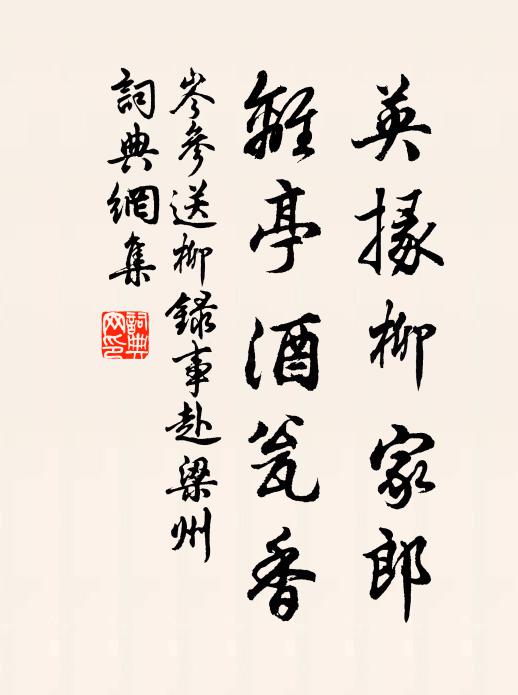 英掾柳家郎
離亭酒瓮香
岑參送柳錄事赴梁州
詞典網集
詞典網印